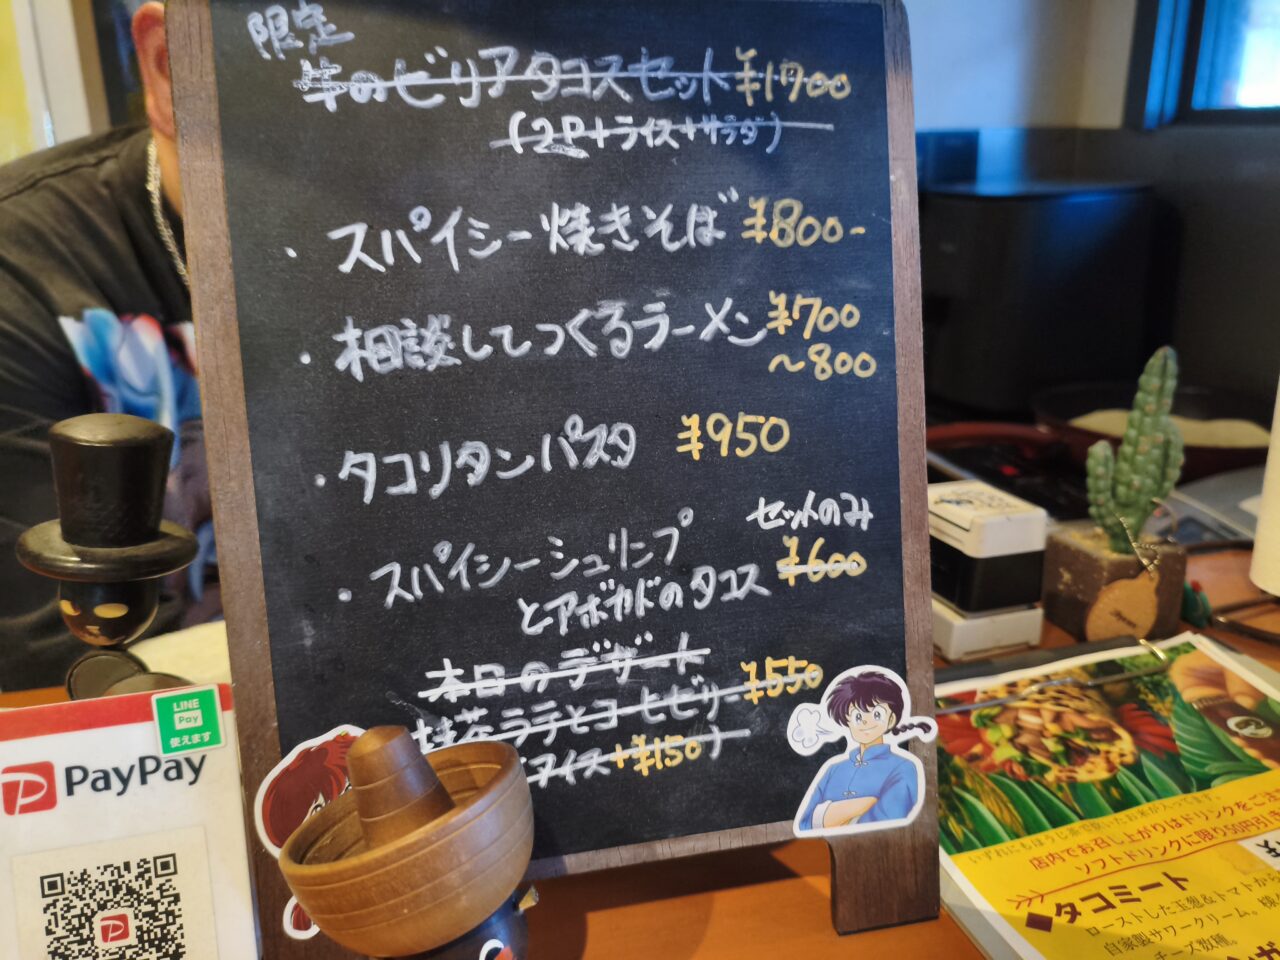 限定
牛のビリアタコスセット ¥1700
(2P+ライス+サラダ)
・スパイシー焼きそば ¥800-
・相談してつくるラーメン ¥700
~800
・タコリタンパスタ ¥950
・スパイシーシュリンプ
とアボカドのタコス
セットのみ
¥600
本日のデザート
抹茶ラテとコーヒゼリー ¥550
アイス +¥150)
LINE
Pay
使えます
PayPay
いずれにもほうじ茶で炊いたお米が入ってます。
店内でお召し上がりはドリンクをご注
ソフトドリンクに限り50円引き
■タコミート
ローストした玉葱&トマトから
自家製サワークリーム。
チーズ数種。